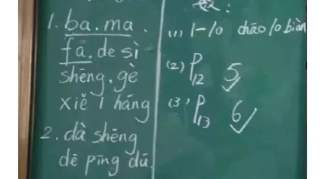 1. ba. ma.
fǎ. de sì
shēng. gè
xiě 1 háng
2. dà shēng
dē pīng dú
(1) 1-10 chāo 10 biàn
(2) P12 5
(3) P13 6